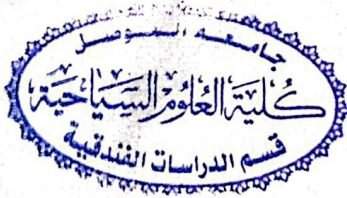 جامعة الموصل
كلية العلوم السياحية
قسم الدراسات الفندقية